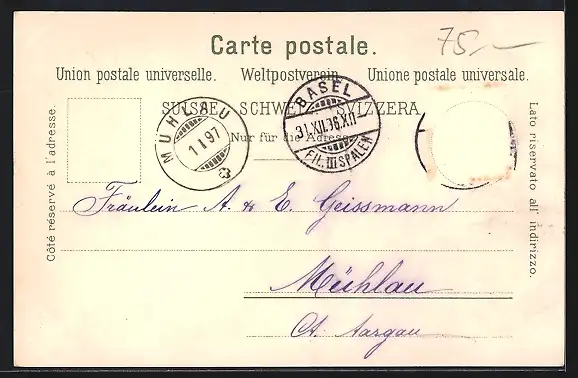 Carte postale.
75.—
Union postale universelle. Weltpostverein. Unione postale universale.
SUISSE. SCHWEIZ. SVIZZERA.
Nur für die Adresse.
Côté réservé à l'adresse.
Lato riservato all' indirizzo.
MÜHLAU
1 I 97
BASEL
31.XII.96.XII
FIL. III SPALEN
Fräulein A. & E. Geissmann
Mühlau
Ct. Aargau